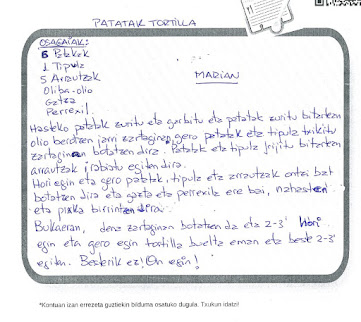 PATATAK TORTILLA
OSAGAIAK:
6 Patatak
1 Tipula
5 Arrautzak
Oliba-olio
Gatza
Perrexil
MARIAN
Hasteko patatak zuritu eta garbitu eta patatak zuritu bitarten
olio berotzen jarri zartaginen gero patatak eta tipula txikitu
zartaginean botatzen dira. Patatak eta tipula frijitu bitartean
arrautzak irabiatu egiten dira.
Hori egin eta gero patatak, tipula eta arrautzak ontzi bat
botatzen dira eta gatza eta perrexila ere bai, nahasten
eta pixka birrinten dira.
Bukaeran, dena zartaginan botatzen da eta 2-3' Hori
egin eta gero egin tortilla buelta eman eta beste 2-3'
egiten. Besterik ez! On egin!
*Kontuan izan errezeta guztiekin bilduma osatuko dugula. Txukun idatzi!